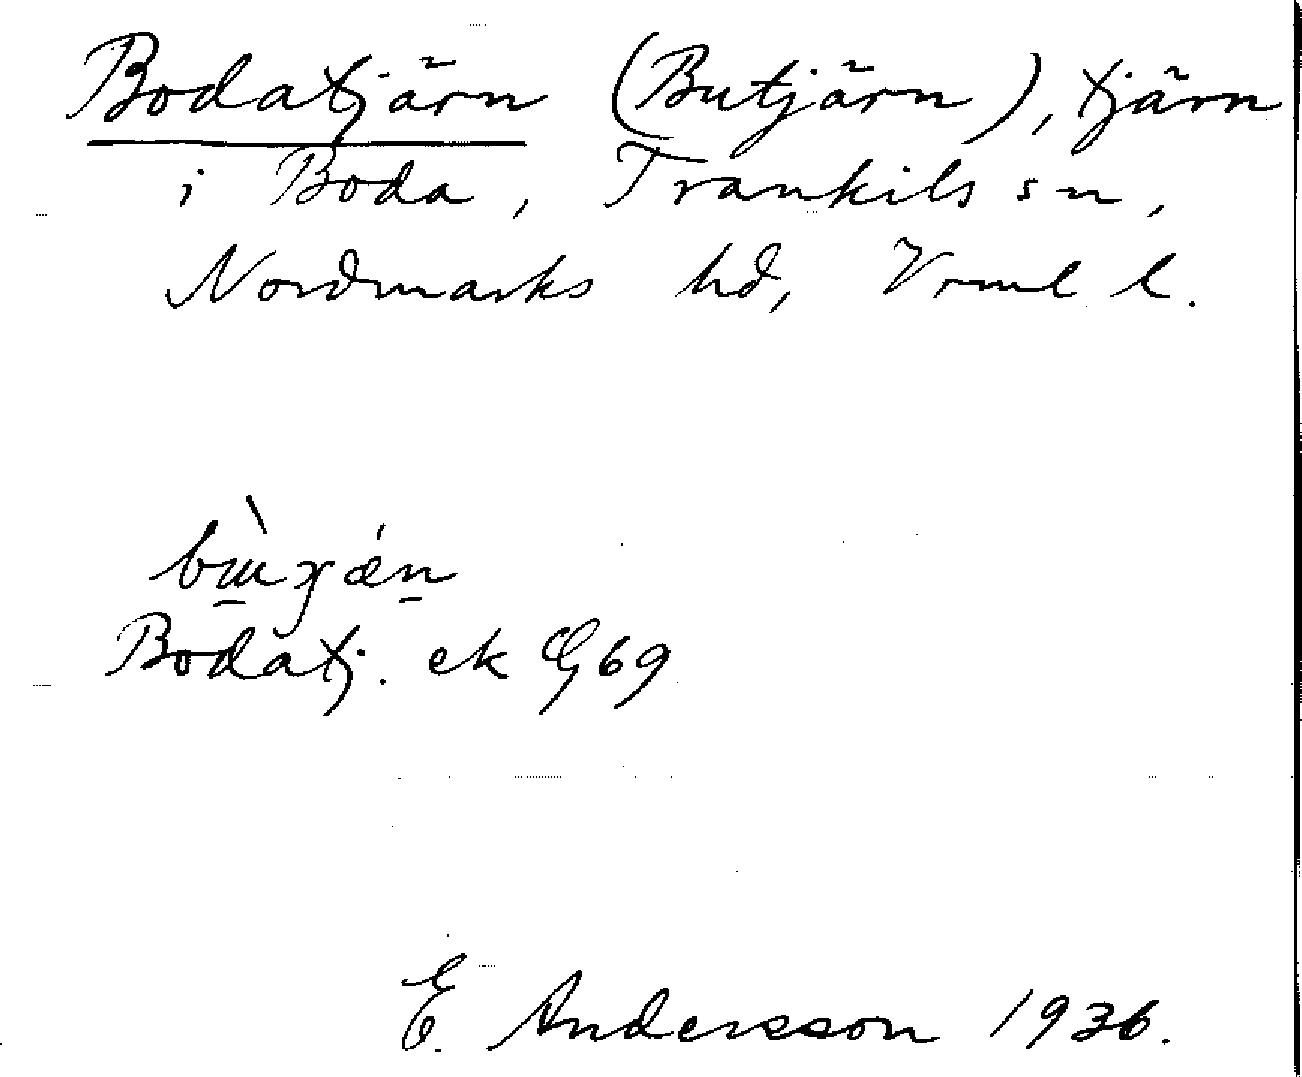 Bodatjärn (Butjärn), tjärn
i Boda, Trankils sn,
Nordmarks hd, Vrml l.
Bodatj. ek 69
E. Andersson 1936.